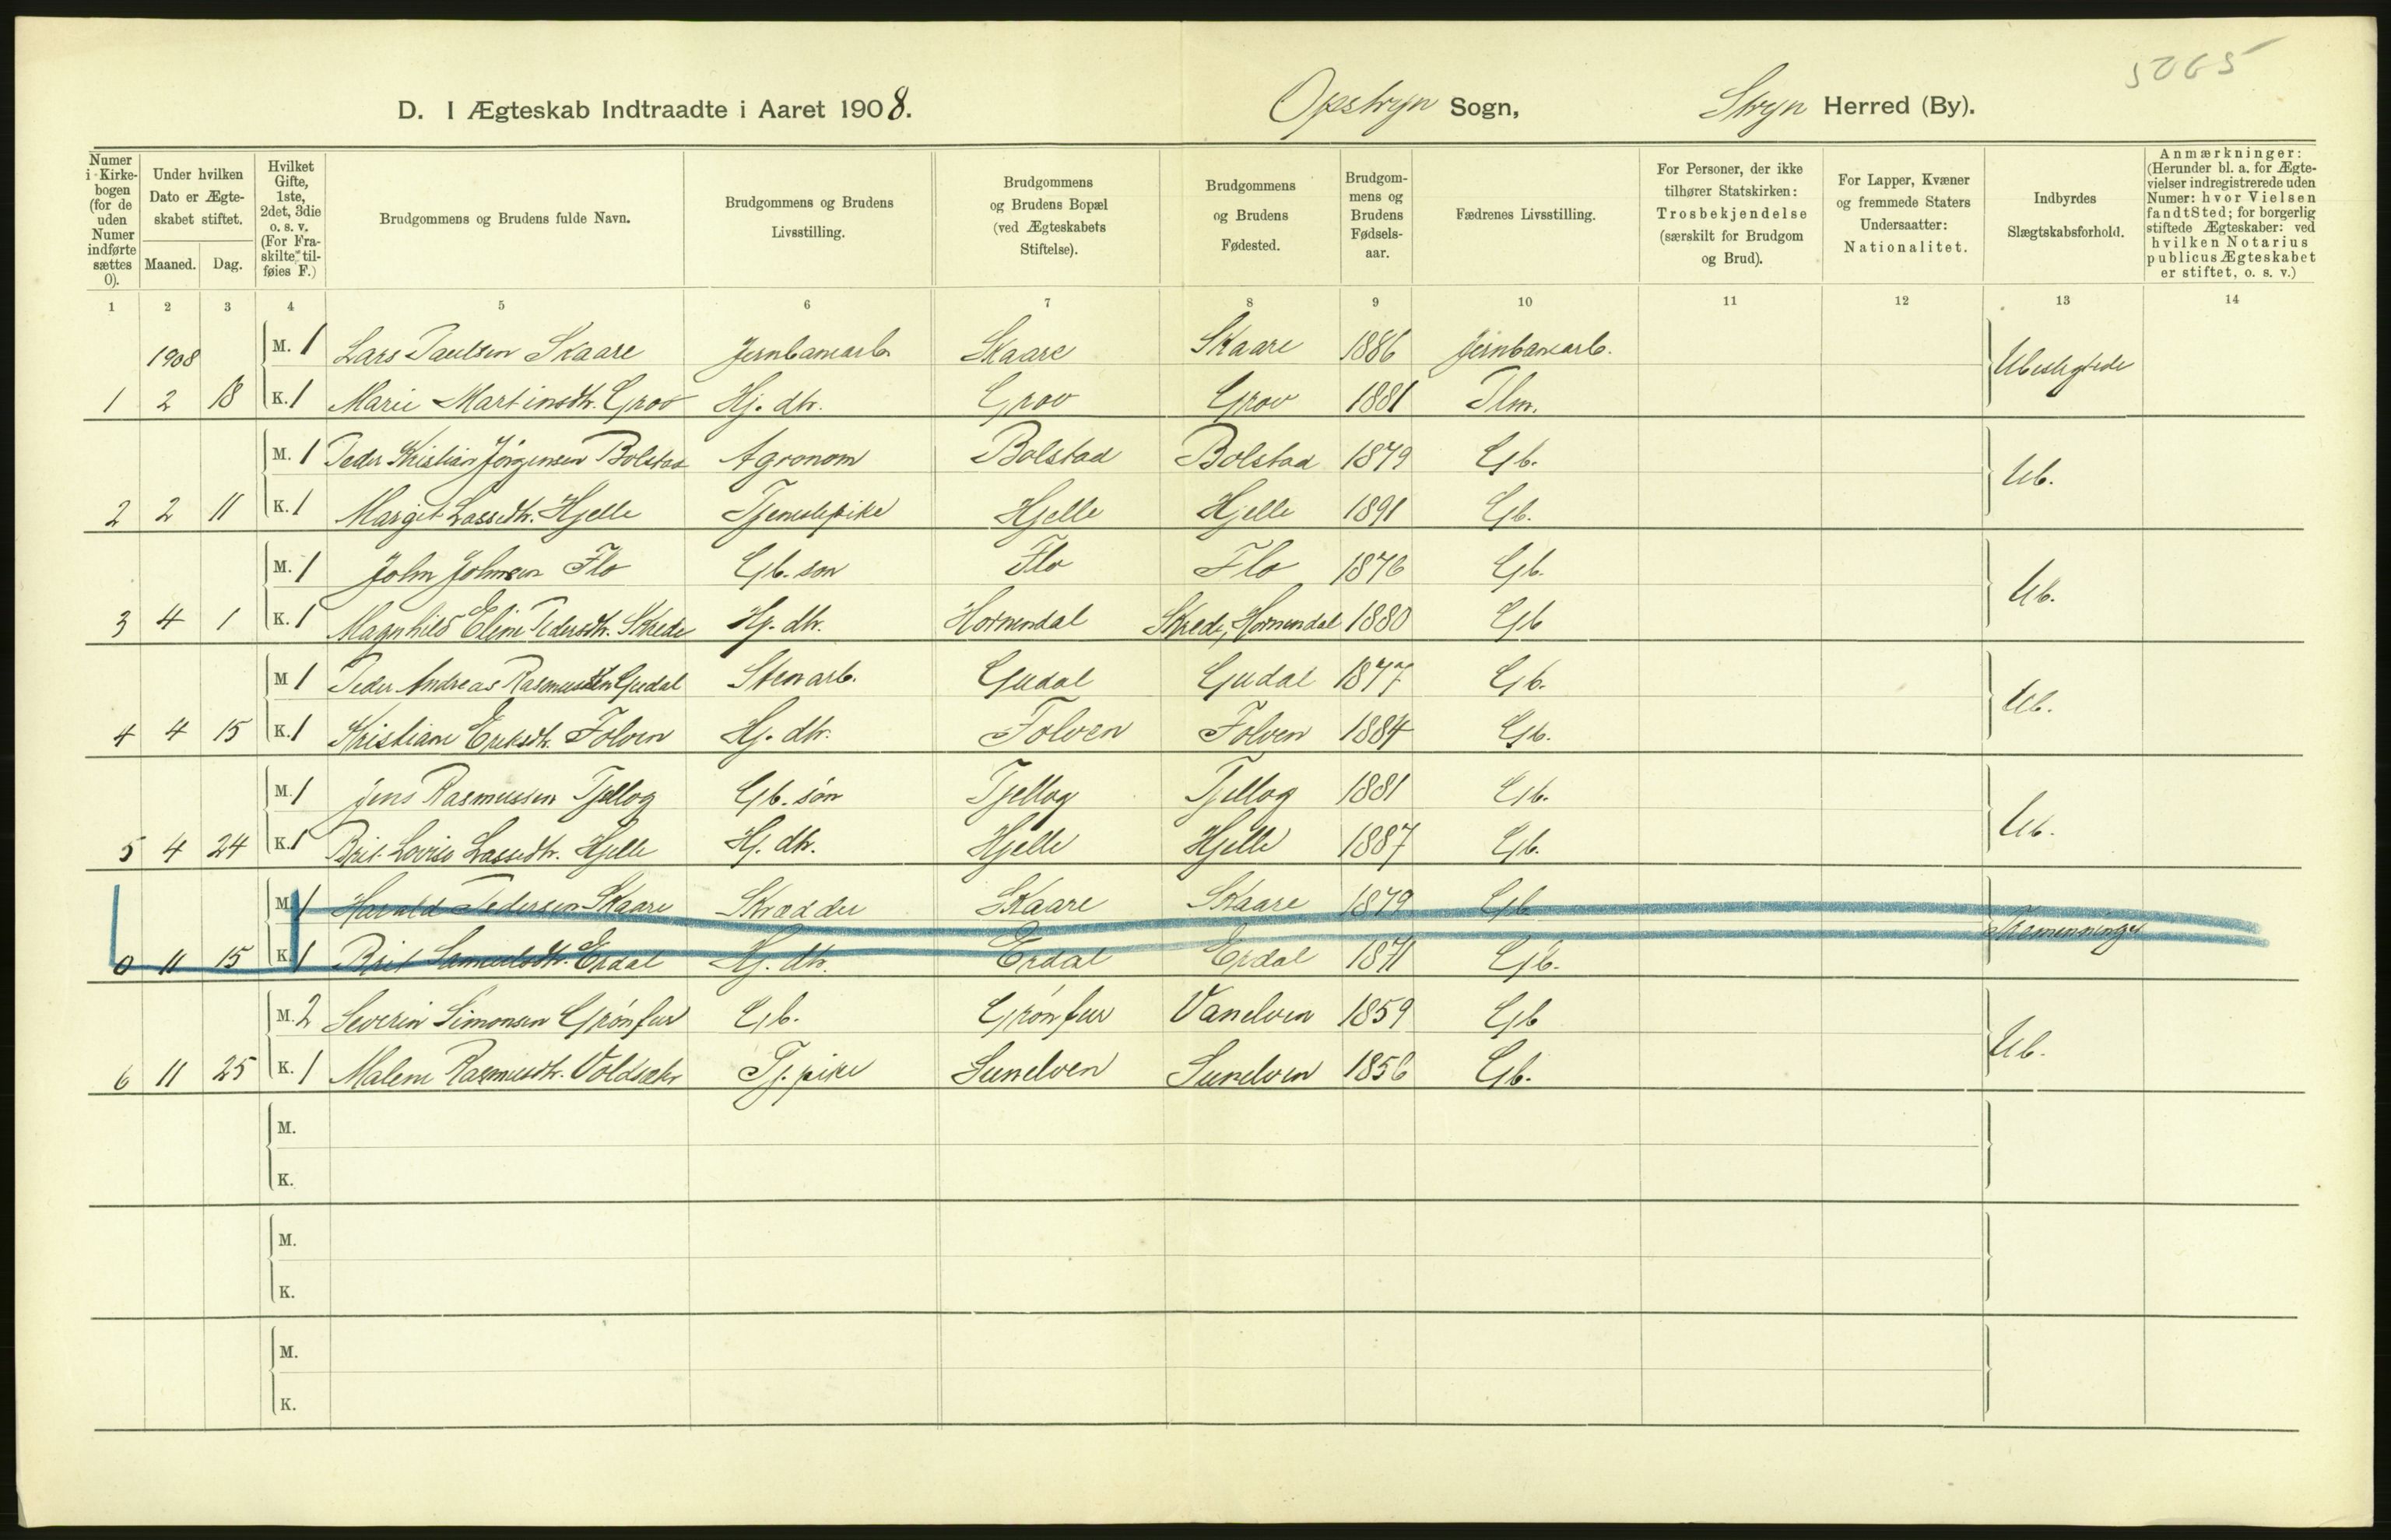 5065
D. I Ægteskab Indtraadte i Aaret 1908. Opstryn Sogn, Stryn Herred (By).
Numer i Kirkebogen (for de uden Numer indførte sættes 0).
Under hvilken Dato er Ægteskabet stiftet.
Maaned. Dag.
Hvilket Gifte, 1ste, 2det, 3die o. s. v. (For Fraskilte tilføies F.)
Brudgommens og Brudens fulde Navn.
Brudgommens og Brudens Livsstilling.
Brudgommens og Brudens Bopæl (ved Ægteskabets Stiftelse).
Brudgommens og Brudens Fødested.
Brudgommens og Brudens Fødselsaar.
Fædrenes Livsstilling.
For Personer, der ikke tilhører Statskirken: Trosbekjendelse (særskilt for Brudgom og Brud).
For Lapper, Kvæner og fremmede Staters Undersaatter: Nationalitet.
Indbyrdes Slægtskabsforhold.
Anmærkninger: (Herunder bl. a. for Ægtevielser indregistrerede uden Numer: hvor Vielsen fandt Sted; for borgerlig stiftede Ægteskaber: ved hvilken Notarius publicus Ægteskabet er stiftet, o. s. v.)
1 2 3 4 5 6 7 8 9 10 11 12 13 14
1908 M. 1 Lars Paulsen Skaare Jernbanearb. Skaare Skaare 1886 Jernbanearb. Ubeslegtede
1 2 18 K. 1 Marie Martinsdtr. Grov Hj. dtr. Grov Grov 1881 Hm.
M. 1 Peder Kristian Jørgensen Bolstad Agronom Bolstad Bolstad 1879 Gb. Ub.
2 2 11 K. 1 Margit Lassedtr. Hjelle Tjenestepike Hjelle Hjelle 1891 Gb.
M. 1 John Johnsen Flo Gb. son Flo Flo 1876 Gb. Ub.
3 4 1 K. 1 Magnhild Eline Pedersdtr. Skrede Hj. dtr. Hornindal Skrede, Hornindal 1880 Gb
M 1 Peder Andreas Rasmussen Gudal Stenarb. Gudal Gudal 1877 Gb. Ub.
4 4 15 K. 1 Kristiane Eriksdtr. Folven Hj. dtr. Folven Folven 1884 Gb.
M. 1 Jens Rasmussen Tjellog Gb. søn Tjellog Tjellog 1881 Gb. Ub.
5 4 24 K. 1 Brit Lovise Lassedtr. Hjelle Hj. dtr. Hjelle Hjelle 1887 Gb.
M. 1 Harald Pedersen Skaare Skrædder Skaare Skaare 1879 Gb. Tremenninger
0 11 15 K. 1 Brit Samuelsdtr. Erdal Hj. dtr. Erdal Erdal 1871 Gb.
M. 2 Severin Simonsen Grønfur Gb. Grønfur Vanelven 1859 Gb Ub.
6 11 25 K. 1 Malene Rasmusdtr. Voldsæter Tj. pike Sunelven Sunelven 1856 Gb.
M.
K.
M.
K.
M.
K.